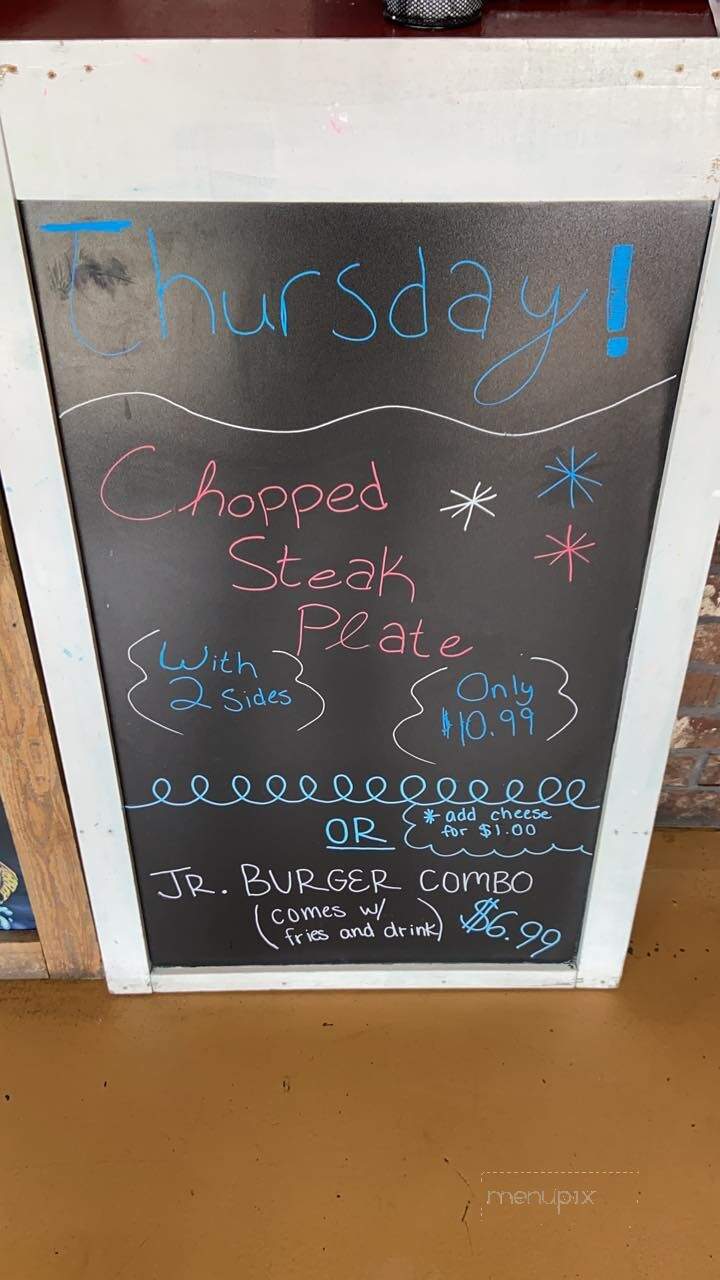 Thursday!
Chopped
Steak
Plate
With
2 Sides
Only
$10.99
OR
* add cheese
for $1.00
JR. BURGER COMBO
(comes w/
fries and drink)
$6.99
menupix